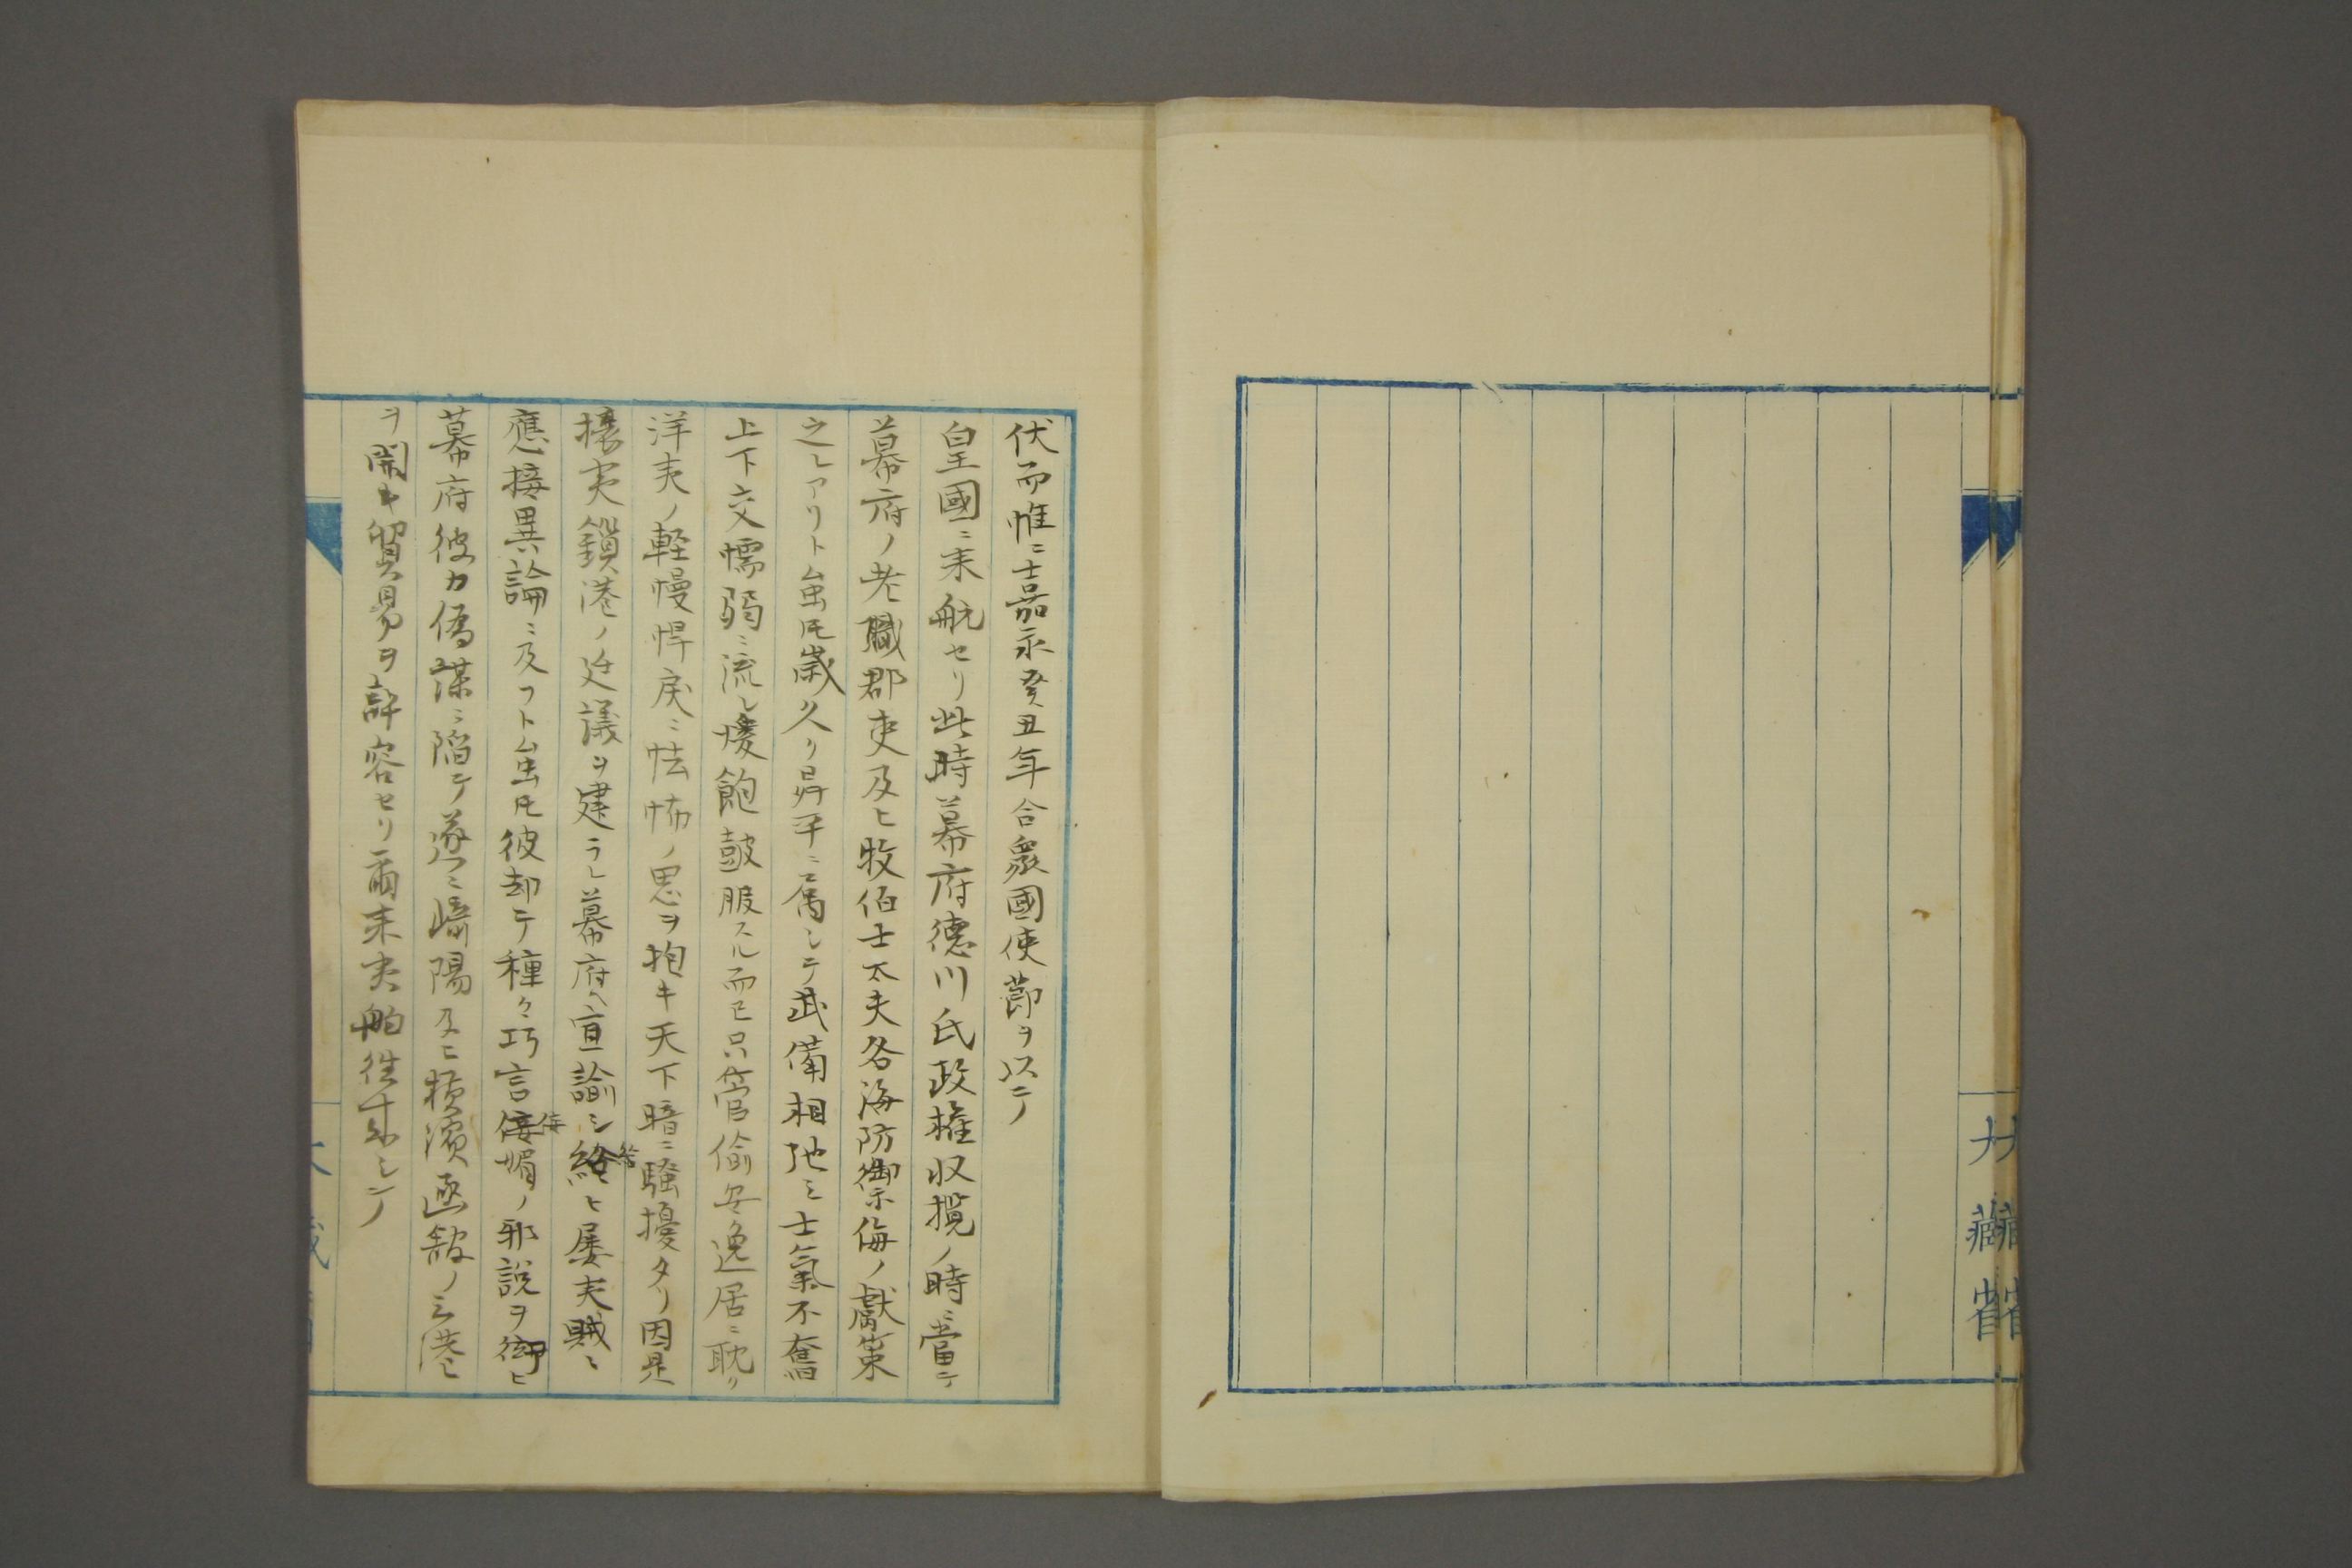 大藏省
伏而惟ニ嘉永癸丑年合衆國使節ヲ以テ
皇國ニ来航セリ此時幕府德川氏政権収攬ノ時ニ當テ
幕府ノ老職郡吏及ヒ牧伯士太夫各海防禦侮ノ獻策
之レアリト虽𪜈歳久ク昇平ニ属シテ武備相弛ミ士氣不奮
上下交懦弱ニ流レ煖飽鼓腹スル而已只管偷安逸居ニ耽リ
洋夷ノ軽慢悍戻ニ怯怖ノ思ヲ抱キ天下暗ニ騒擾タリ因是
攘夷鎖港ノ廷議ヲ建ラレ幕府ヘ宣諭シ終ヒ屡夷賊ニ
應接異論ニ及フト虽𪜈彼却テ種々巧言佞媚ノ邪説ヲ衒ヒ
幕府彼カ僑謀ニ陷テ遂ニ﨑陽及ヒ横濱凾舘ノ三港
ヲ開キ貿易ヲ許容セリ爾来夷舶往来シテ